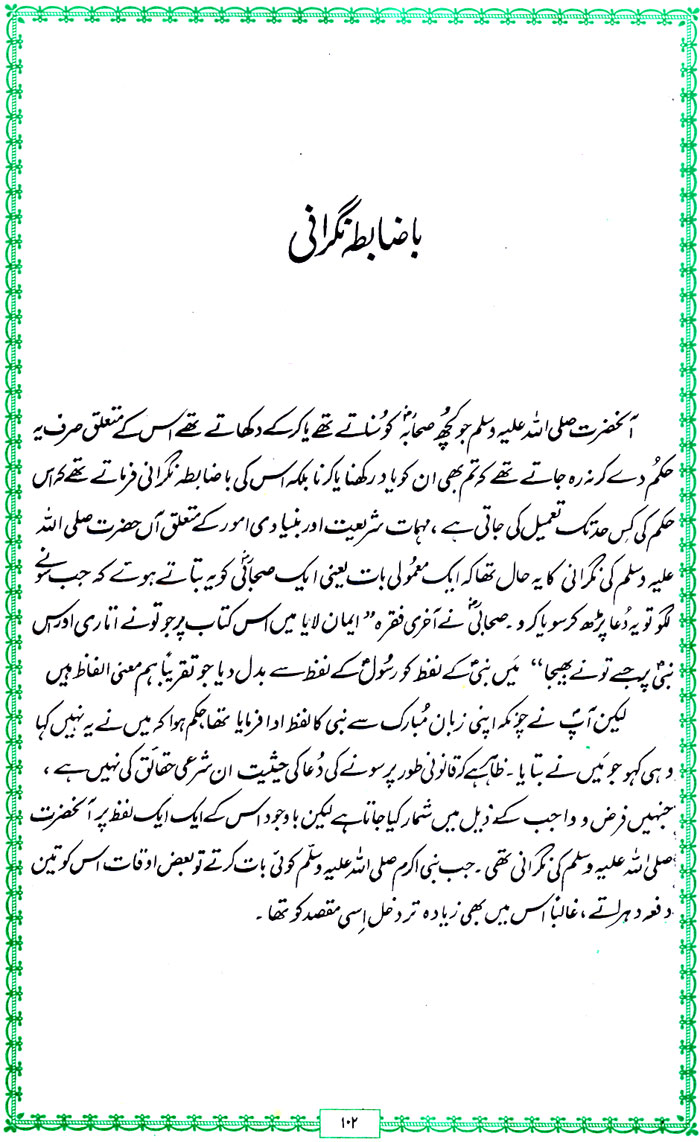 باضابطہ نگرانی
آنحضرت صلی اللہ علیہ وسلم جو کچھ صحابہؓ کو سُناتے تھے یا کرکے دکھاتے تھے اس کے متعلق صرف یہ
حکم دے کر نہ رہ جاتے تھے کہ تم بھی ان کو یاد رکھنا یا کرنا بلکہ اس کی باضابطہ نگرانی فرماتے تھے کہ اس
حکم کی کس حد تک تعمیل کی جاتی ہے، مہمات شریعت اور بنیادی امور کے متعلق آں حضرت صلی اللہ
علیہ وسلم کی نگرانی کا یہ حال تھا کہ ایک معمولی بات یعنی ایک صحابیؓ کو یہ بتاتے ہوئے کہ جب سونے
لگو تو یہ دُعا پڑھ کر سویا کرو۔ صحابیؓ نے آخری فقرہ ”ایمان لایا میں اس کتاب پر جو تو نے اتاری اور اس
نبیؐ پر جسے تو نے بھیجا“ مَیں نبیؐ کے لفظ کو رسولؐ کے لفظ سے بدل دیا جو تقریباً ہم معنی الفاظ ہیں
لیکن آپؐ نے چونکہ اپنی زبان مُبارک سے نبی کا لفظ ادا فرمایا تھا، حکم ہوا کہ میں نے یہ نہیں کہا
وہی کہو جو مَیں نے بتایا۔ ظاہر ہے کہ قانونی طور پر سونے کی دُعا کی حیثیت ان شرعی حقائق کی نہیں ہے،
جنہیں فرض و واجب کے ذیل میں شمار کیا جاتا ہے لیکن باوجود اس کے ایک ایک لفظ پر آنحضرت
صلی اللہ علیہ وسلم کی نگرانی تھی۔ جب نبی اکرم صلی اللہ علیہ وسلّم کوئی بات کرتے تو بعض اوقات اس کو تین
دفعہ دہراتے، غالباً اس میں بھی زیادہ تر دخل اِسی مقصد کو تھا۔
۱۰۲